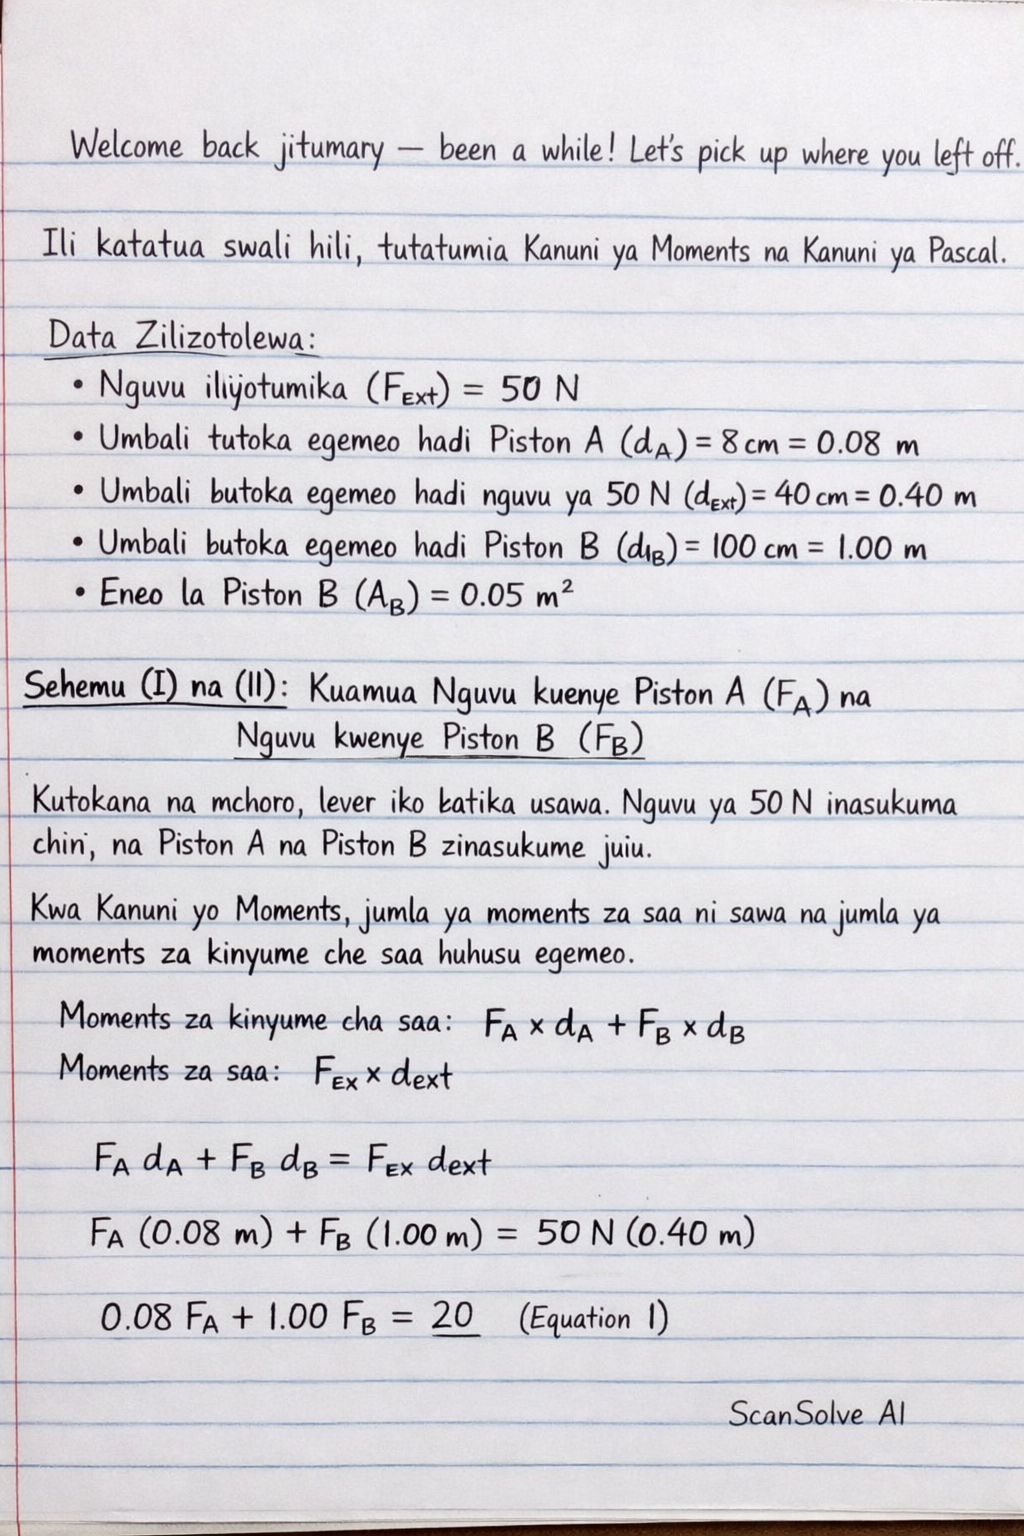 Welcome back jitumary — been a while! Let's pick up where you left off.
Ili katatua swali hili, tutatumia Kanuni ya Moments na Kanuni ya Pascal.
Data Zilizotolewa:
• Nguvu iliyotumika (F_Ext) = 50 N
• Umbali tutoka egemeo hadi Piston A (d_A) = 8 cm = 0.08 m
• Umbali butoka egemeo hadi nguvu ya 50 N (d_Ext) = 40 cm = 0.40 m
• Umbali butoka egemeo hadi Piston B (d_IB) = 100 cm = 1.00 m
• Eneo la Piston B (A_B) = 0.05 m²
Sehemu (I) na (II): Kuamua Nguvu kuenye Piston A (F_A) na
Nguvu kwenye Piston B (F_B)
Kutokana na mchoro, lever iko batika usawa. Nguvu ya 50 N inasukuma
chin', na Piston A na Piston B zinasukume juiu.
Kwa Kanuni yo Moments, jumla ya moments za saa ni sawa na jumla ya
moments za kinyume che saa huhusu egemeo.
Moments za kinyume cha saa: F_A × d_A + F_B × d_B
Moments za saa: F_EX × dext
F_A d_A + F_B d_B = F_EX dext
F_A (0.08 m) + F_B (1.00 m) = 50 N (0.40 m)
0.08 F_A + 1.00 F_B = 20 (Equation 1)
ScanSolve AI